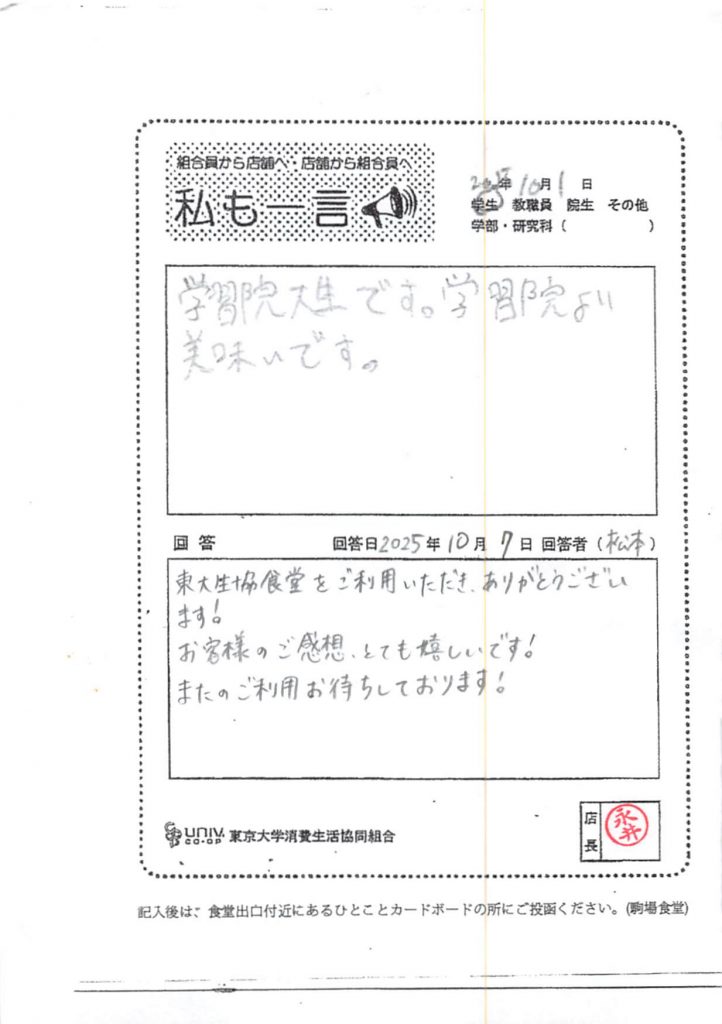 組合員から店舗へ・店舗から組合員へ
私も一言
2025年10月1日
学生 教職員 院生 その他
学部・研究科( )
学習院大生です。学習院より
美味いです。
回答 回答日2025年10月7日 回答者(松本)
東大生協食堂をご利用いただき、ありがとうござい
ます!
お客様のご感想、とても嬉しいです!
またのご利用お待ちしております!
UNIV. CO-OP 東京大学消費生活協同組合
店長 永井
記入後は、食堂出口付近にあるひとことカードボードの所にご投函ください。(駒場食堂)